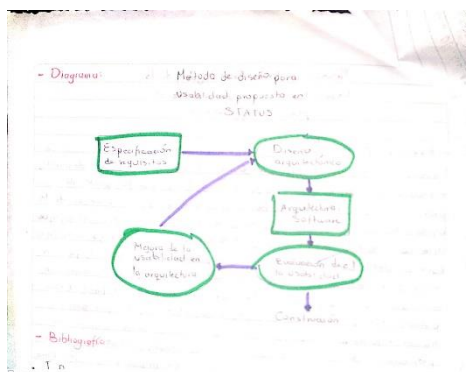 - Diagrama:
Método de diseño para
usabilidad propuesto en
STATUS
Especificación
de requisitos
Diseño
arquitectónico
Arquitectura
Software
Evaluación de
la usabilidad
Mejora de la
usabilidad en
la arquitectura
- Bibliografía: